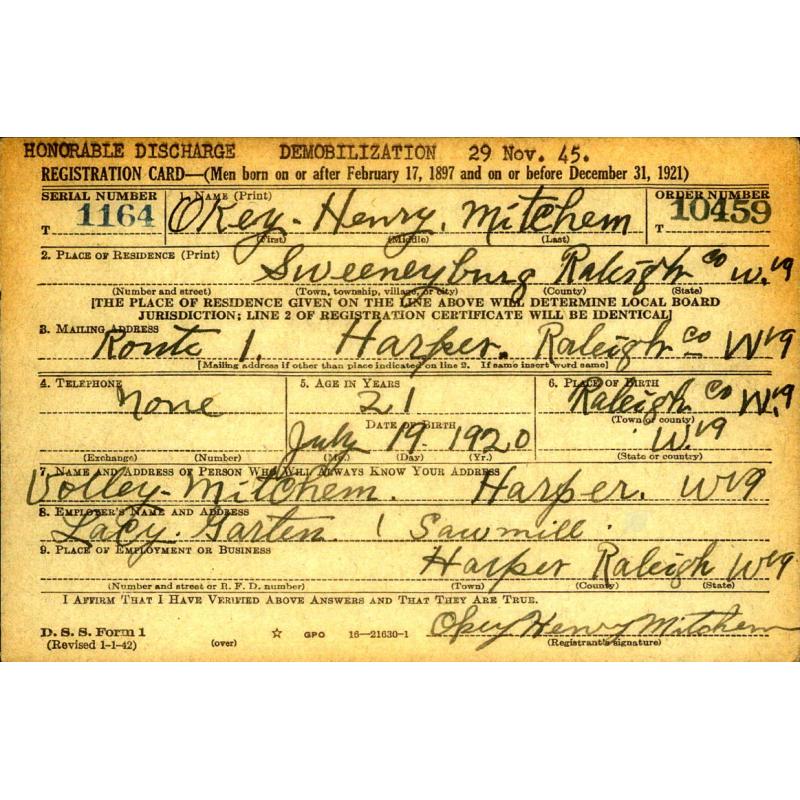 HONORABLE DISCHARGE DEMOBILIZATION 29 Nov. 45.
REGISTRATION CARD—(Men born on or after February 17, 1897 and on or before December 31, 1921)
SERIAL NUMBER 1. NAME (Print) ORDER NUMBER
T 1164 Okey- Henry. Mitchem T 10459
(First) (Middle) (Last)
2. PLACE OF RESIDENCE (Print)
Sweeneyburg Raleigh Co W.Va
(Number and street) (Town, township, village, or city) (County) (State)
[THE PLACE OF RESIDENCE GIVEN ON THE LINE ABOVE WILL DETERMINE LOCAL BOARD
JURISDICTION; LINE 2 OF REGISTRATION CERTIFICATE WILL BE IDENTICAL]
3. MAILING ADDRESS
Route 1. Harper. Raleigh Co WVa
[Mailing address if other than place indicated on line 2. If same insert word same]
4. TELEPHONE 5. AGE IN YEARS 6. PLACE OF BIRTH
None 21 Raleigh Co W.Va
DATE OF BIRTH (Town or county)
July 19. 1920 W.Va
(Exchange) (Number) (Mo.) (Day) (Yr.) (State or country)
7. NAME AND ADDRESS OF PERSON WHO WILL ALWAYS KNOW YOUR ADDRESS
Volley- Mitchem. Harper. WVa
8. EMPLOYER'S NAME AND ADDRESS
Lacy. Garten. Sawmill.
9. PLACE OF EMPLOYMENT OR BUSINESS
Harper Raleigh WVa
(Number and street or R. F. D. number) (Town) (County) (State)
I AFFIRM THAT I HAVE VERIFIED ABOVE ANSWERS AND THAT THEY ARE TRUE.
D. S. S. Form 1
(Revised 1-1-42) (over) ☆ GPO 16—21630-1 Okey Henry Mitchem
(Registrant's signature)